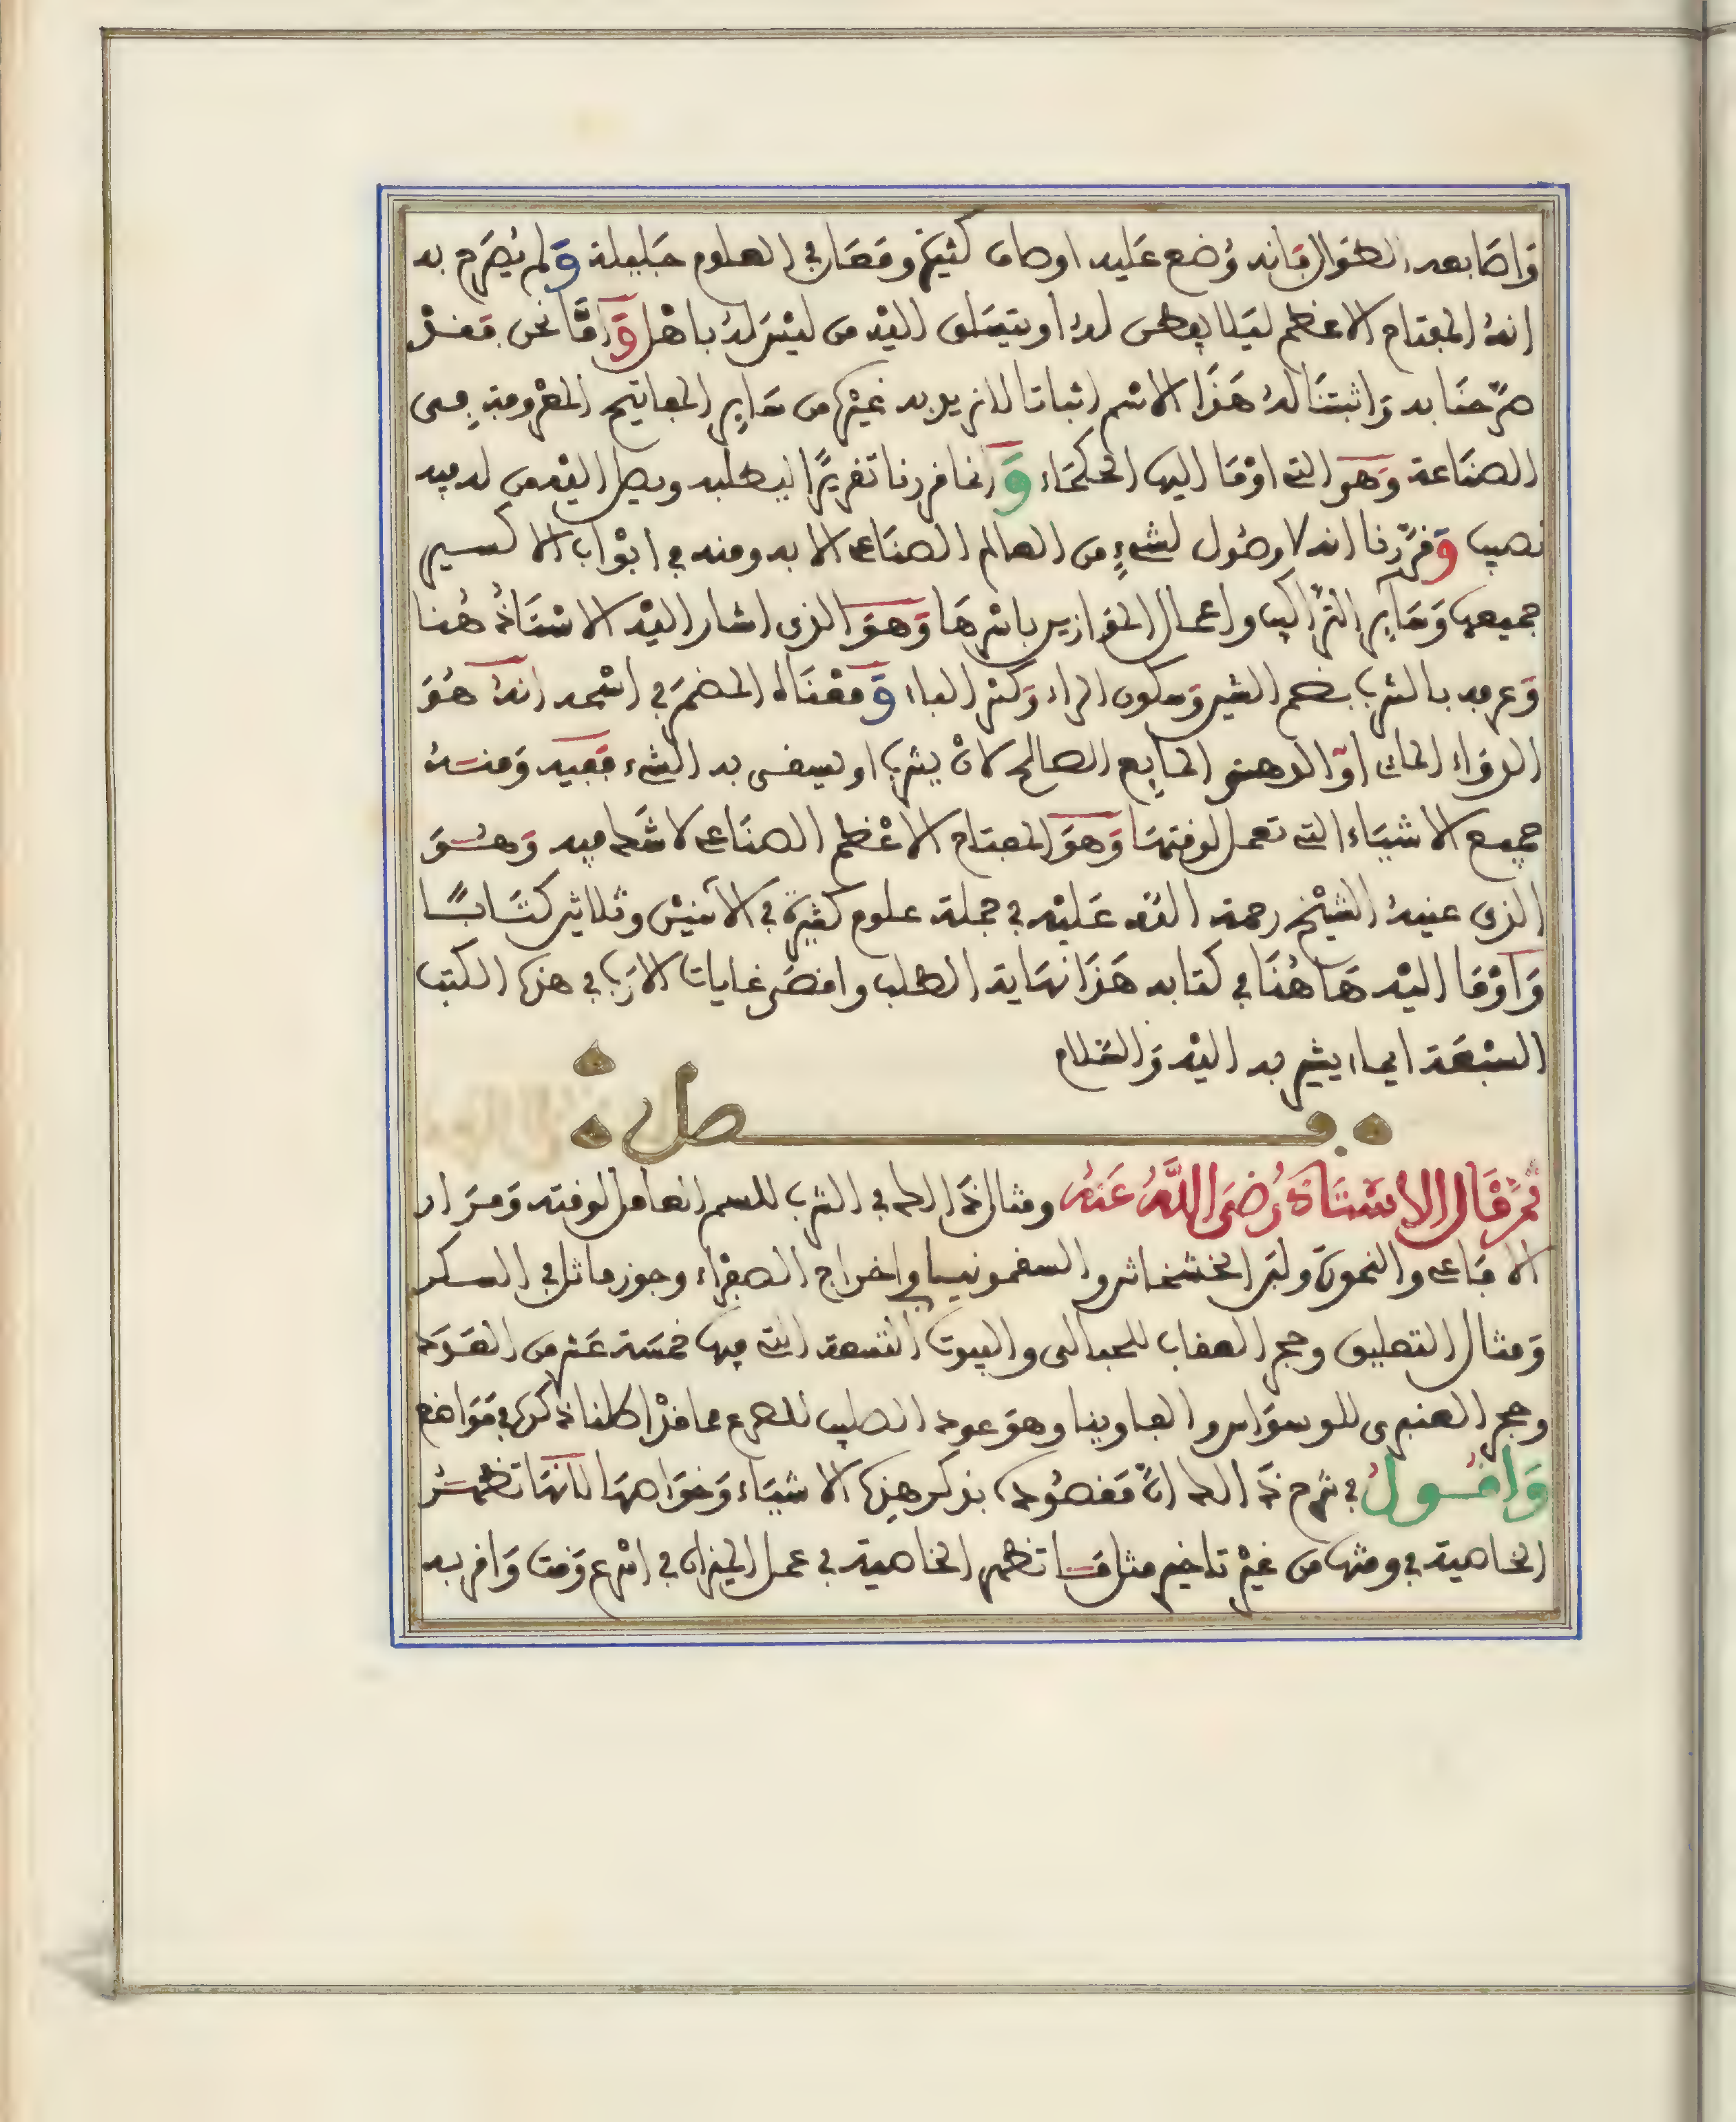 وَاصَابعه الطوَال فانه وُضع عَليه اوصاف كثيرة ومَعَارف في العلوم جَليلة وَلم يُصَرح به
انهُ المفتاح الاعظم ليَلا يفطن لهُ او يتسَلق اليْه من ليْسَ لهُ باهْل وَامَّا نحن فقدْ
صرَّحنَا به وَاثبتنَا لهُ هَذَا الاسْم اثباتا لانريد به غيْرَه من سَاير المفاتيح المعْرُوفة في
الصنَاعة وَهوَ التي اوْمَا اليها الحكمَاء وَانما قررنا تقريرًا ليطلبه ويصل اليْه من له فيه
نصيب وَقرَّرنا انه لا وصُول لشيءٍ من العالم الصنَاعي الا به ومنه في ابْوَاب الاكسير
جميعها وَسَاير التَرَاكيب واعمال الموَازين باسْرهَا وَهوَ الذي اشار اليْه الاسْتَاذُ هُنا
وَعرفه بالشرب بضم الشين وَسكون الراء وَكسْر الباء وَمعْنَاه المضمَر في اسْمه انهُ هُوَ
الدوَاء المائي اوّ الدهني المايع الصالح لانْ يشرب او يسقى به الشيء فَفيه وَمنْهُ
جميع الاشيَاء التي تعمل لوقتهَا وَهوَ المفتاح الاعْظم الصنَاعي لا شَك فيه وَهُوَ
الذي عينهُ الشيْخ رحمة الله عَليْه في جملة علوم كثيرة في الاثنيْن وثلاثين كتَابًا
وَاوْمَا اليْه هَاهُنَا في كتابه هَذَا نهَاية الطلب واقصَى غايات الارَب في هذه الكتب
السبْعَة ايماء يشير به اليْه وَالسَّلام
فصل
ثمَّ قَال الاسْتَاذ رَضيَ اللَّهُ عَنهُ ومثال ذَالك في الشرب للسم العامل لوقته وَمرَار
الافَاعي والنمورَة ولبَن الخشخاش والسقمونيا في اخراج الصفرَاء وجوز ماثل في السكر
وَمثال التعليق وحجر العقاب للحبالى والبيوت التسعة التي فيها خمسَة عَشر من العَدَد
وحجر العنبري للوسوَاس والفاوينا وهوَ عود الصليب للصرع مما قدْ اكلنا ذكره في مَوَاضع
وَاقُول في شرح ذَالك انَّ مَقصُوده بذكر هذه الاشيَاء وَخوَاصهَا لانهَا تظهَر
الخاصية في وقتها من غيْر تاخير مثل مَا تظهر الخاصية في عمل الميزان في اسْرع وَقت وَاقربه